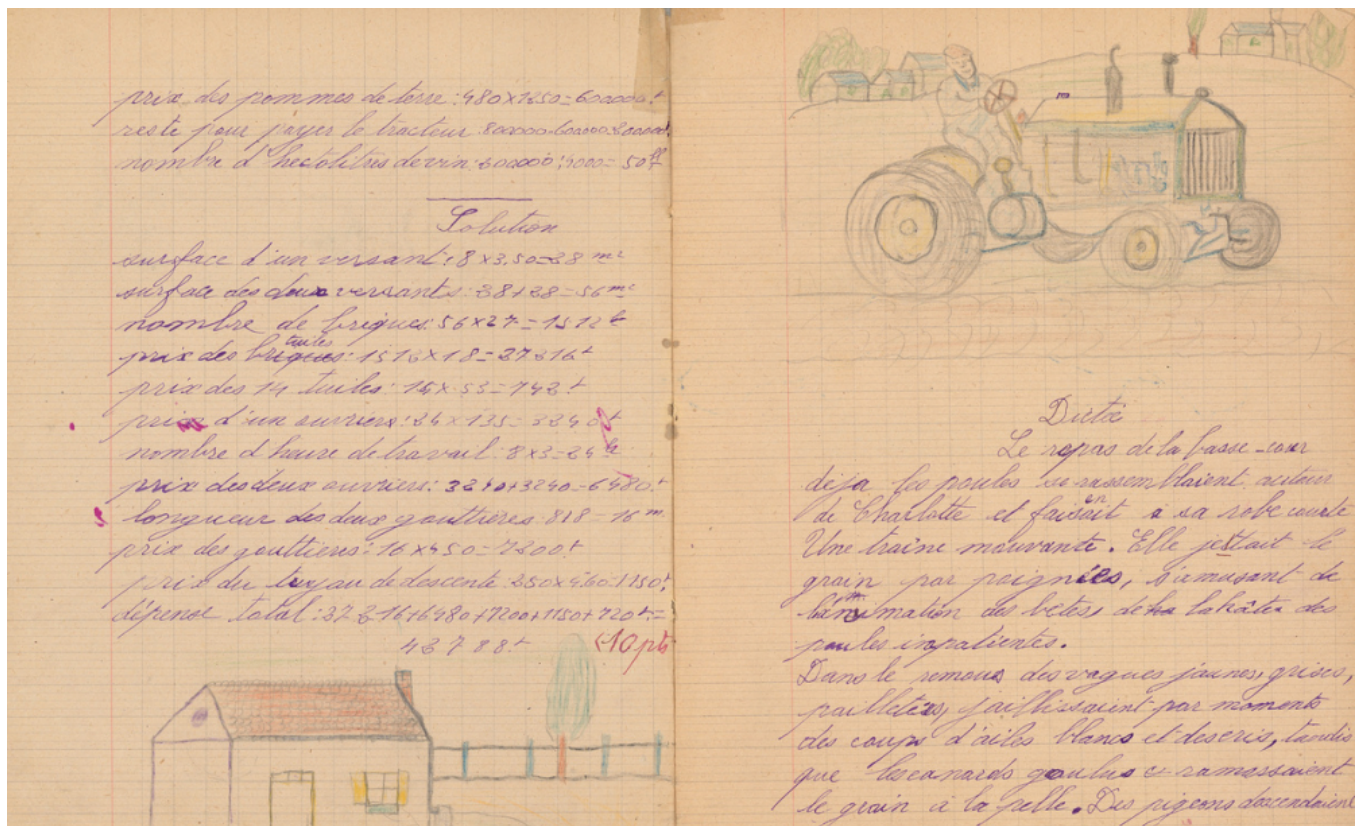 prix des pommes de terre : 480 x 1250 = 600000f
reste pour payer le tracteur : 800000 - 600000 = 200000
nombre d'hectolitres de vin : 200000 : 4000 = 50 hl
Solution
surface d'un versant : 8 x 3,50 = 28 m²
surface des deux versants : 28 + 28 = 56 m²
nombre de briques : 56 x 27 = 1512 t
prix des briques tuiles : 1512 x 18 = 27216f
prix des 14 tuiles : 14 x 53 = 742f
prix d'un ouvriers : 24 x 135 = 3240f
nombre d'heure de travail : 8 x 3 = 24 h
prix des deux ouvriers : 3240 + 3240 = 6480f
longueur des deux gouttières : 8 + 8 = 16 m
prix des gouttières : 16 x 450 = 7200f
prix du tuyau de descente : 250 x 4,60 = 1150f
dépense total : 27216 + 6480 + 7200 + 1150 + 720f =
43788f <10 pts
Dictée
Le repas de la basse-cour
déja les poules se rassemblaient autour
de Charlotte et faisait en à sa robe courte
Une traîne mouvante. Elle jettait le
grain par poignées, s'amusant de
l'animation des betes, de la hâte des
poules inpatientes.
Dans le remous des vagues jaunes, grises,
pailletées, jaillissaient par moments
des coups d'ailes blancs et des cris, tandis
que les canards goulus ramassaient
le grain à la pelle. Des pigeons descendaient